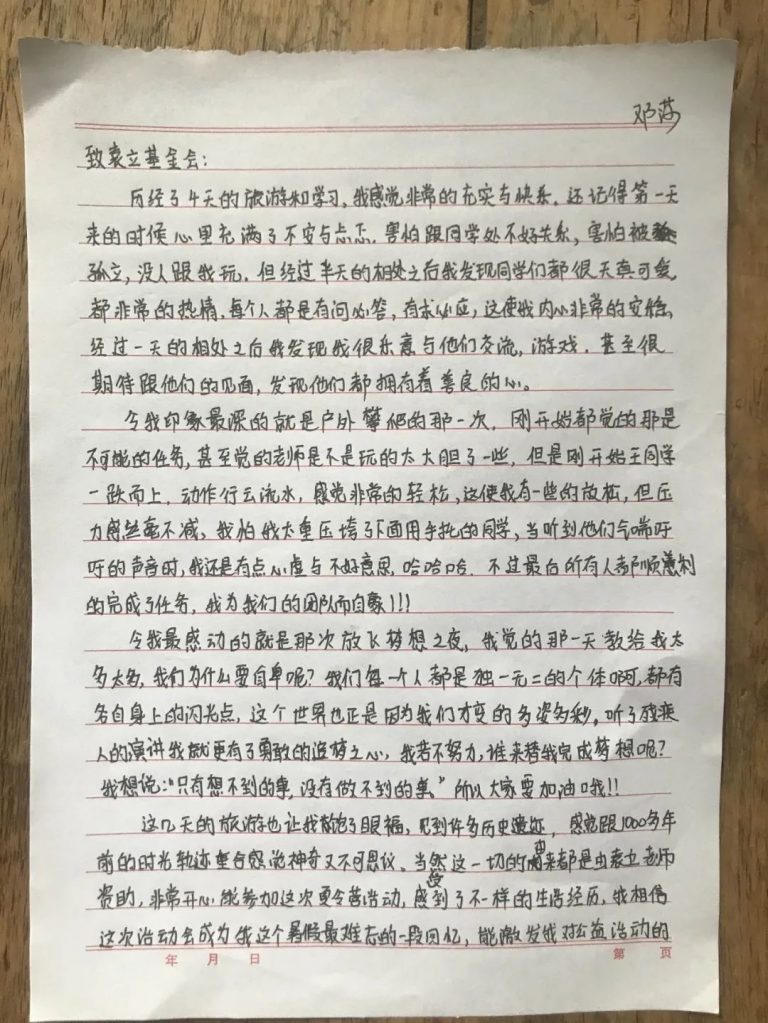 邓莎
致袁立基金会:
历经了4天的旅游和学习,我感觉非常的充实与快乐.还记得第一天
来的时候心里充满了不安与忐忑.害怕跟同学处不好关系,害怕被
孤立,没人跟我玩.但经过半天的相处之后我发现同学们都很天真可爱,
都非常的热情.每个人都是有问必答,有求必应,这使我内心非常的安稳,
经过一天的相处之后我发现我很乐意与他们交流,游戏.甚至很
期待跟他们的见面,发现他们都拥有着善良的心。
令我印象最深的就是户外攀爬的那一次,刚开始都觉的那是
不可能的任务,甚至觉的老师是不是玩的太大胆了一些,但是刚开始王同学
一跌而上.动作行云流水,感觉非常的轻松,这使我有一些的放松,但压
力感丝毫不减,我怕我太重压垮了下面用手托的同学,当听到他们气喘吁
吁的声音时,我还是有点心虚与不好意思.哈哈哈.不过最后所有人都顺利
的完成了任务,我为我们的团队而自豪!!!
令我最感动的就是那次放飞梦想之夜,我觉的那一天教给我太
多太多,我们为什么要自卑呢?我们每一个人都是独一无二的个体啊,都有
各自身上的闪光点,这个世界也正是因为我们才变的多姿多彩。听了残疾
人的演讲我就更有了勇敢的追梦之心,我若不努力,谁来替我完成梦想呢?
我想说:"只有想不到的事,没有做不到的事。"所以大家要加油哦!!
这几天的旅游也让我饱了眼福,见到许多历史遗迹,感觉跟1000多年
前的时光轨迹重合感觉神奇又不可思议、当然这一切的由来都是由袁立老师
资助,非常开心能参加这次夏令营活动,感受到了不一样的生活经历,我相信
这次活动会成为我这个暑假最难忘的一段回忆,能激发我对公益活动的
年 月 日 第 页